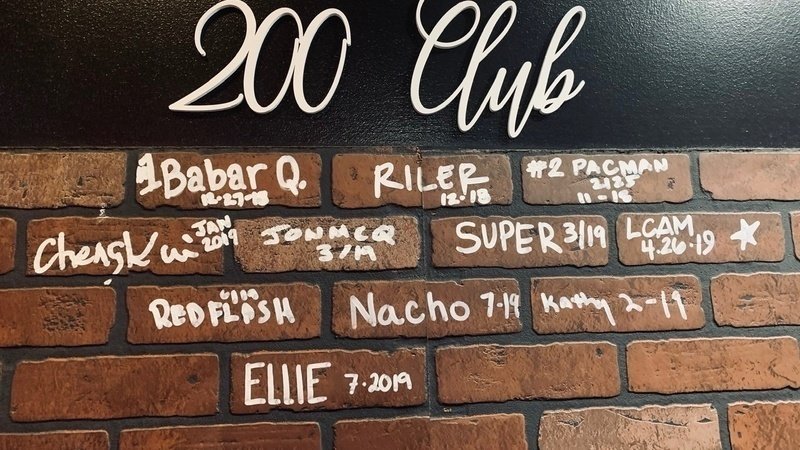 200 Club
1 Babar Q.
12-27-18
RILER
12.18
#2 PACMAN
2125
11-18
Chengkui JAN
2019
JONMCQ
3/19
SUPER 3/19
LCAM
4.26.19
REDFLASH
Nacho 7-19
Kathy 2-19
ELLIE 7.2019